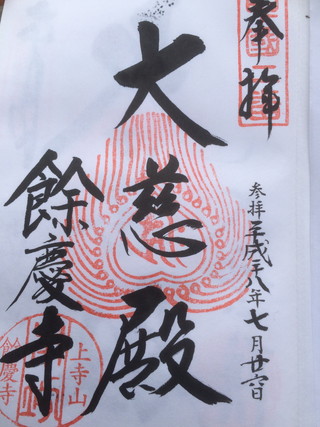 奉拝
参拝平成二八年七月廿六日
大慈殿
餘慶寺
上寺山
餘慶寺